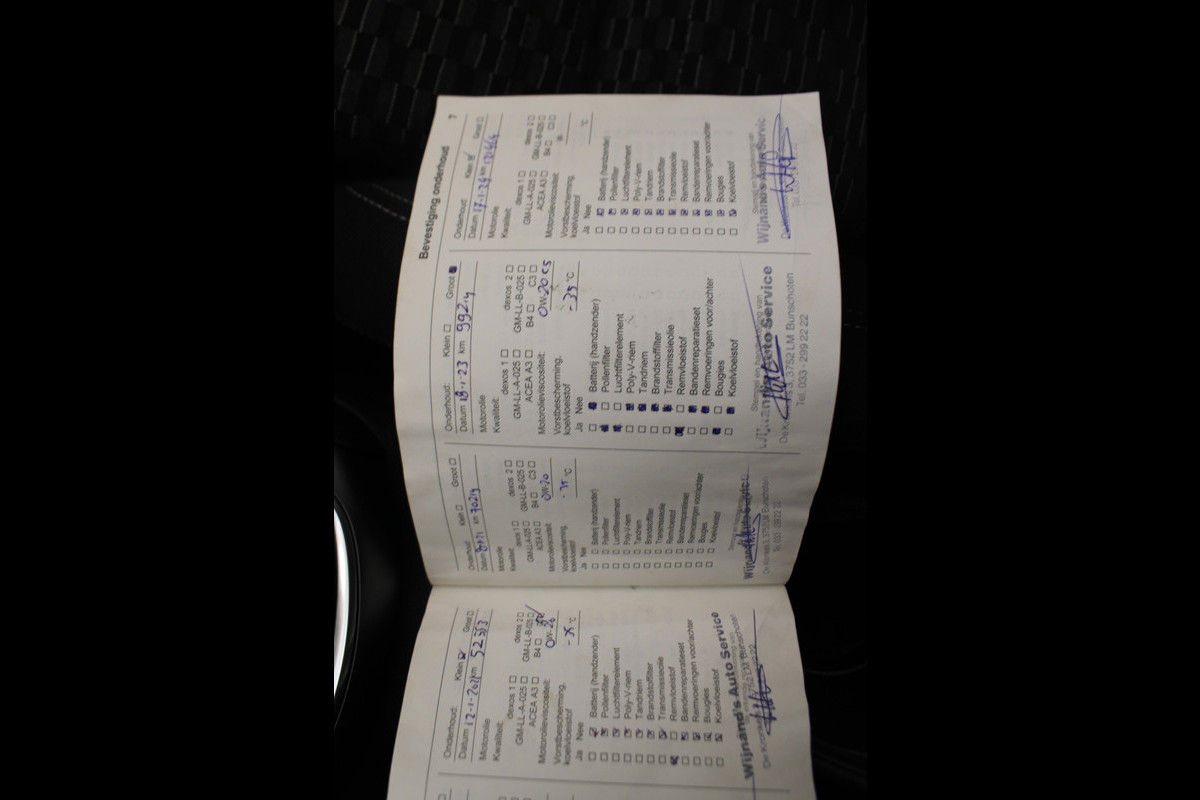 Bevestiging onderhoud
7
Onderhoud: Klein Groot
Datum 12-1-2021 km 52353
Motorolie
Kwaliteit:
dexos 1 dexos 2
GM-LL-A-025 GM-LL-B-025
ACEA A3 B4
Motorolieviscositeit: 0W-20
Vorstbescherming,
koelvloeistof -35 °C
Ja Nee
Batterij (handzender)
Pollenfilter
Luchtfilterelement
Poly-V-riem
Tandriem
Brandstoffilter
Transmissieolie
Remvloeistof
Bandenreparatieset
Remvoeringen voor/achter
Bougies
Koelvloeistof
Wijnand's Auto Service
3752 LM Bunschoten
Onderhoud: Klein Groot
Datum km 70219
Motorolie
Kwaliteit:
dexos 1 dexos 2
GM-LL-A-025 GM-LL-B-025
ACEA A3 B4 C3
Motorolieviscositeit: 0W-20
Vorstbescherming,
koelvloeistof °C
Ja Nee
Batterij (handzender)
Pollenfilter
Luchtfilterelement
Poly-V-riem
Tandriem
Brandstoffilter
Transmissieolie
Remvloeistof
Bandenreparatieset
Remvoeringen voor/achter
Bougies
Koelvloeistof
Wijnand's Auto Service
3752 LM Bunschoten
Tel. 033 - 299 22 22
Onderhoud: Klein Groot
Datum 18-1-23 km 99214
Motorolie
Kwaliteit:
dexos 1 dexos 2
GM-LL-A-025 GM-LL-B-025
ACEA A3 B4 C3
Motorolieviscositeit: 0W-20 C5
Vorstbescherming,
koelvloeistof -39 °C
Ja Nee
Batterij (handzender)
Pollenfilter
Luchtfilterelement
Poly-V-riem
Tandriem
Brandstoffilter
Transmissieolie
Remvloeistof
Bandenreparatieset
Remvoeringen voor/achter
Bougies
Koelvloeistof
Auto Service
3, 3752 LM Bunschoten
Tel. 033 - 299 22 22
Onderhoud: Klein Groot
Datum 17-1-24 km
Motorolie
Kwaliteit:
dexos 1 dexos 2
GM-LL-A-025 GM-LL-B-025
ACEA A3 B4 C3
Motorolieviscositeit:
Vorstbescherming,
koelvloeistof °C
Ja Nee
Batterij (handzender)
Pollenfilter
Luchtfilterelement
Poly-V-riem
Tandriem
Brandstoffilter
Transmissieolie
Remvloeistof
Bandenreparatieset
Remvoeringen voor/achter
Bougies
Koelvloeistof
Wijnand's Auto Servic
Tel.